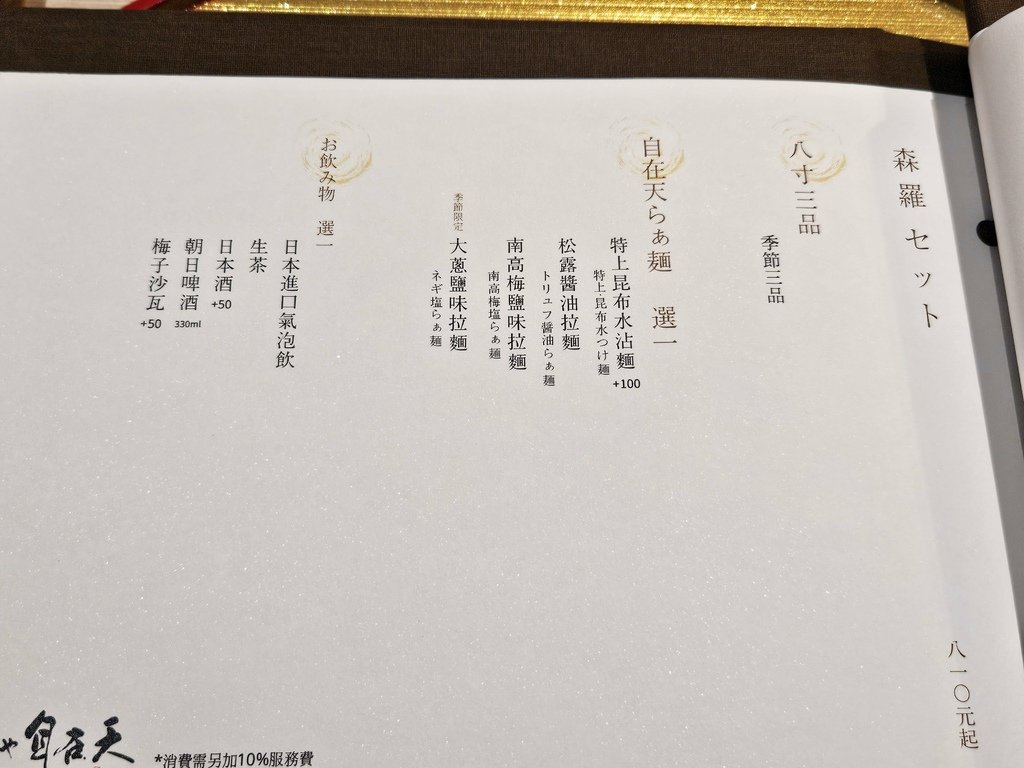 森羅セット
八一〇元起
八寸三品
季節三品
自在天らぁ麺 選一
特上昆布水沾麵 +100
特上昆布水つけ麺
松露醬油拉麵
トリュフ醤油らぁ麺
南高梅鹽味拉麵
南高梅塩らぁ麺
季節限定
大蔥鹽味拉麵
ネギ塩らぁ麺
お飲み物 選一
日本進口氣泡飲
生茶
日本酒 +50
朝日啤酒 330ml
梅子沙瓦 +50
や 自在天
*消費需另加10%服務費